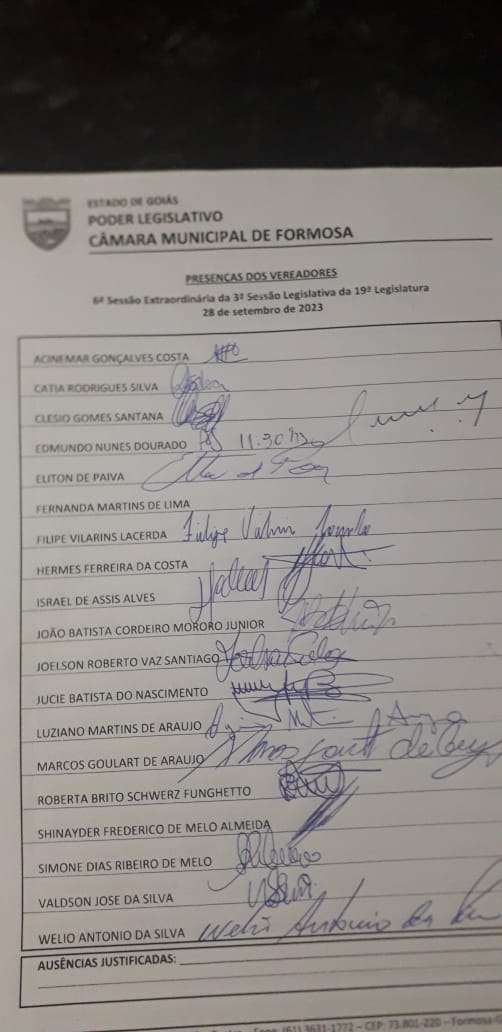 ESTADO DE GOIÁS
PODER LEGISLATIVO
CÂMARA MUNICIPAL DE FORMOSA
PRESENÇAS DOS VEREADORES
6ª Sessão Extraordinária da 3ª Sessão Legislativa da 19ª Legislatura
28 de setembro de 2023
ACINEMAR GONÇALVES COSTA
CATIA RODRIGUES SILVA
CLESIO GOMES SANTANA
EDMUNDO NUNES DOURADO 11:30 hs
ELITON DE PAIVA
FERNANDA MARTINS DE LIMA
FILIPE VILARINS LACERDA Filipe
HERMES FERREIRA DA COSTA
ISRAEL DE ASSIS ALVES
JOÃO BATISTA CORDEIRO MORORO JUNIOR
JOELSON ROBERTO VAZ SANTIAGO
JUCIE BATISTA DO NASCIMENTO
LUZIANO MARTINS DE ARAUJO
MARCOS GOULART DE ARAUJO
ROBERTA BRITO SCHWERZ FUNGHETTO
SHINAYDER FREDERICO DE MELO ALMEIDA
SIMONE DIAS RIBEIRO DE MELO
VALDSON JOSE DA SILVA
WELIO ANTONIO DA SILVA Welio Antonio da
AUSÊNCIAS JUSTIFICADAS:
(61) 3631-1772 – CEP: 73.801-220 – Formosa